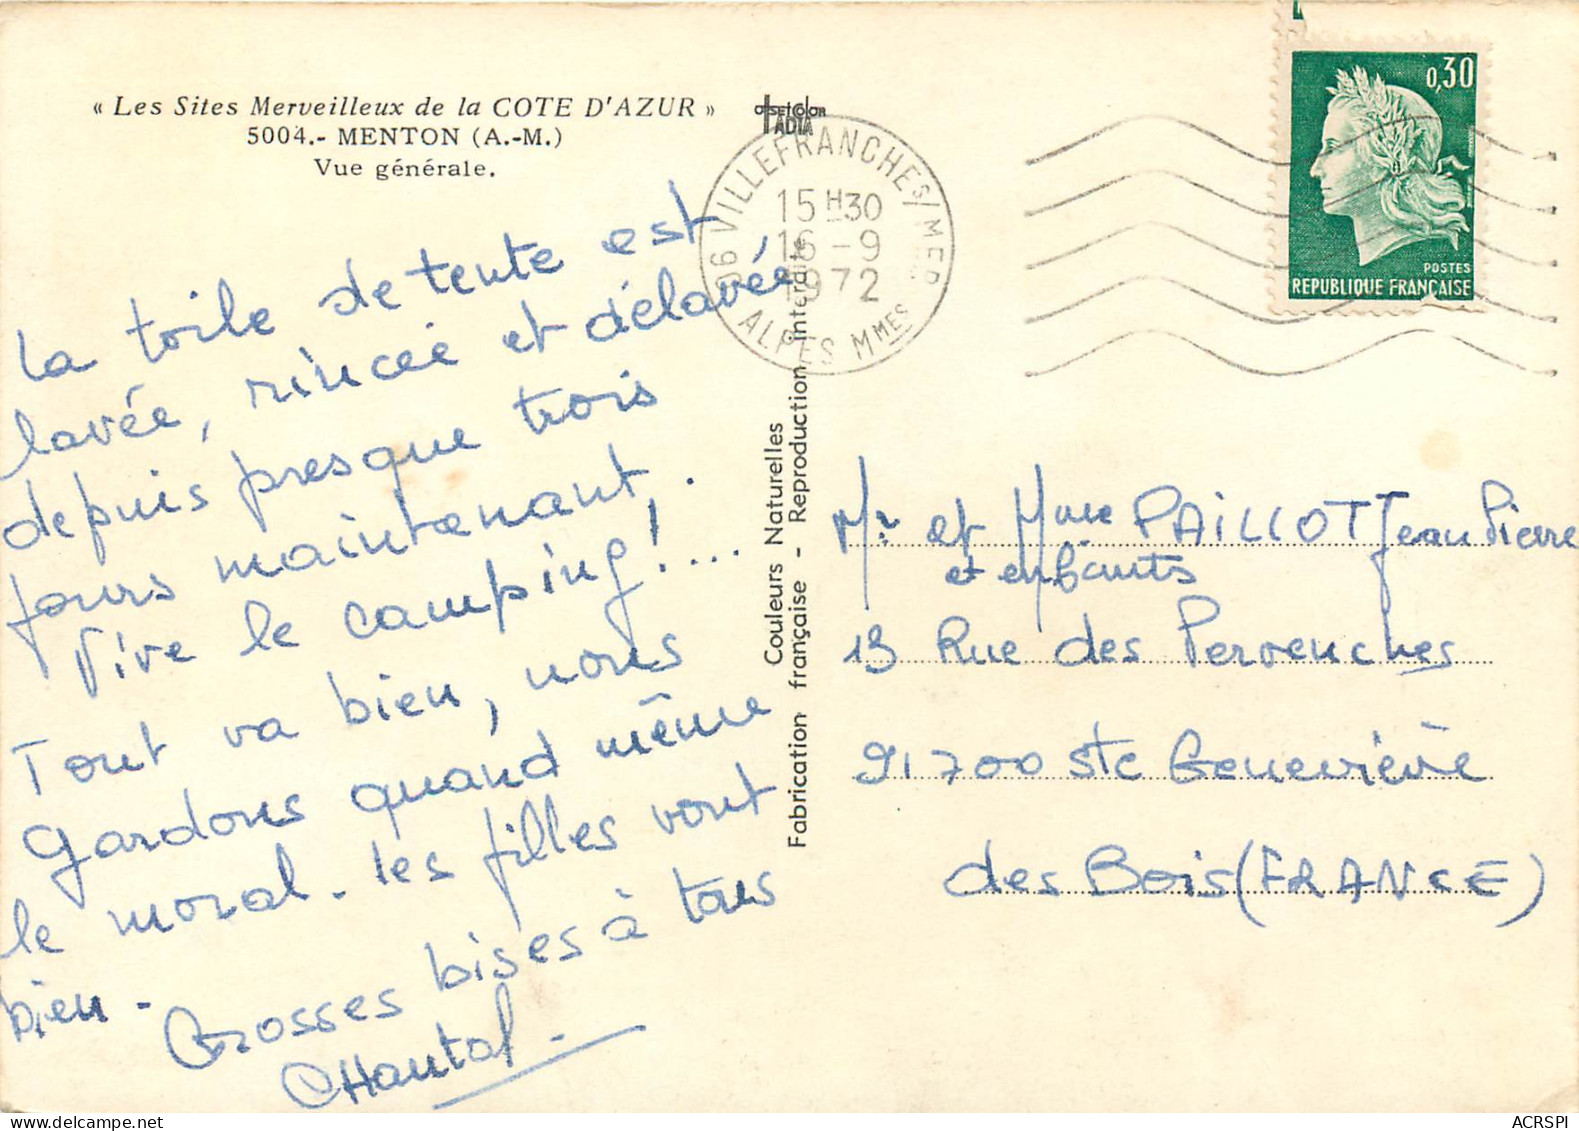 « Les Sites Merveilleux de la COTE D'AZUR »
5004.- MENTON (A.-M.)
Vue générale.
La toile de tente est
lavée, rincée et délavée,
depuis presque trois
jours maintenant.
Vive le camping!...
Tout va bien, nous
gardons quand même
le moral. Les filles vont
bien -
Grosses bises à tous
CHantal.
offsetcolor
IADIA
06 VILLEFRANCHE S/MER
15 H 30
16 - 9
1972
ALPES MMES
0,30
POSTES
REPUBLIQUE FRANÇAISE
Couleurs Naturelles
Fabrication française - Reproduction Interdite
Mr et Mme PAILLOT Jean Pierre
et enfants
13 Rue des Pervenches
91700 Ste Geneviève
des Bois (FRANCE)
ACRSPI